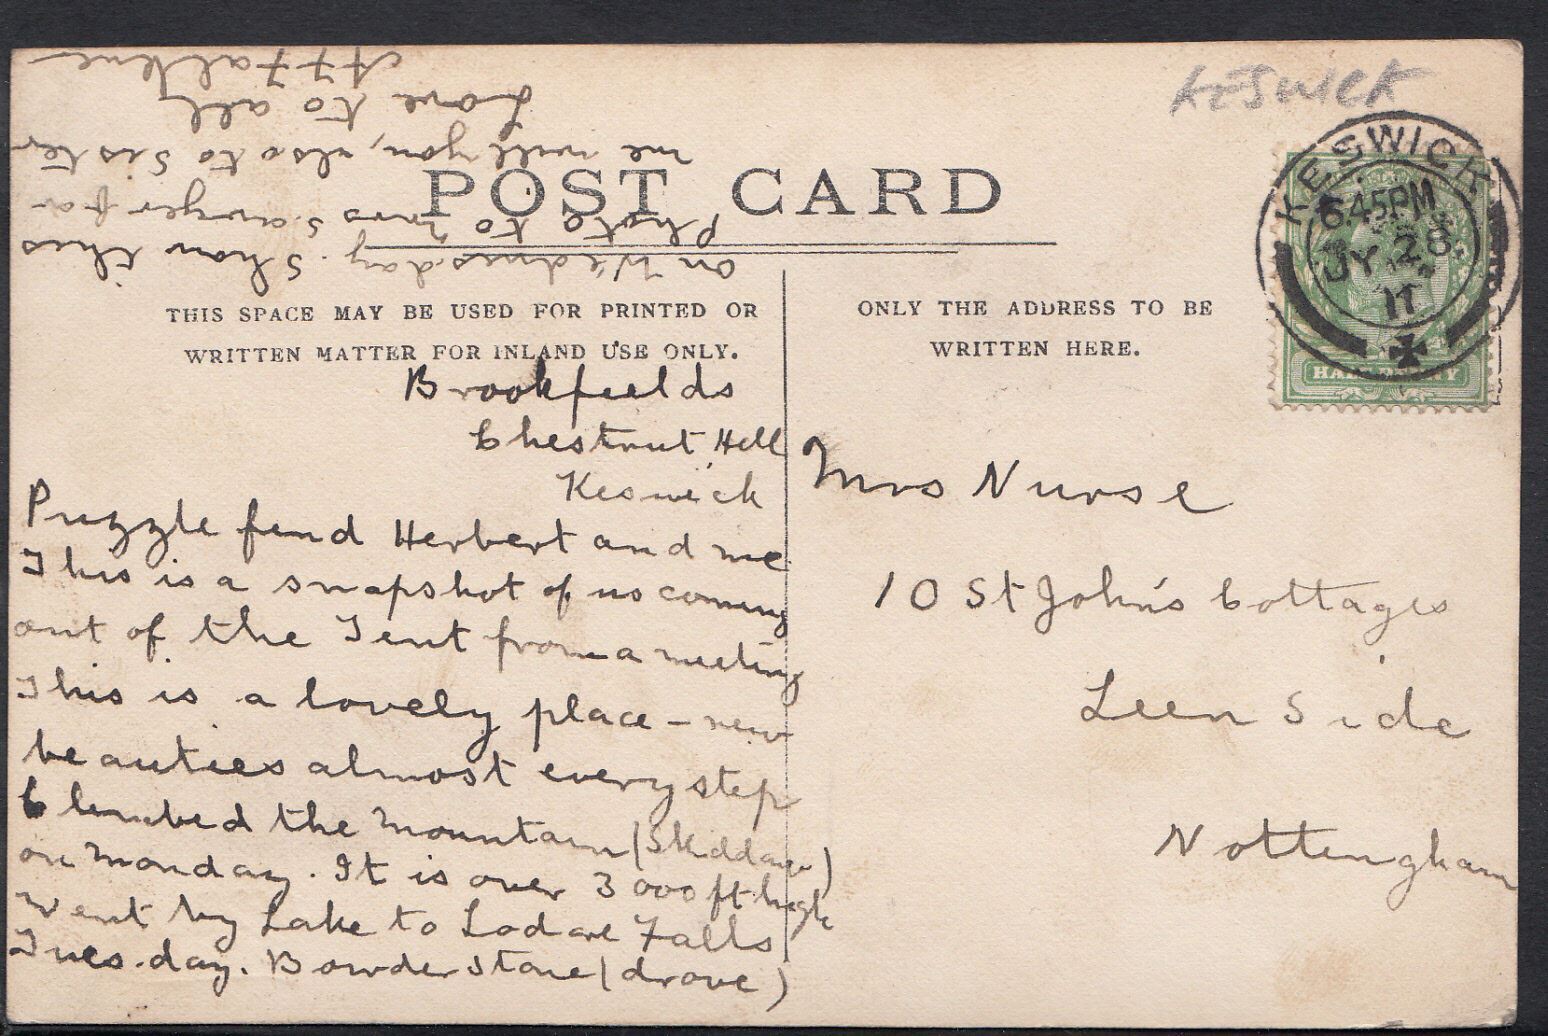 KESWICK
POST CARD
THIS SPACE MAY BE USED FOR PRINTED OR
WRITTEN MATTER FOR INLAND USE ONLY.
ONLY THE ADDRESS TO BE
WRITTEN HERE.
KESWICK
6.45PM
JY 28
11
HALFPENNY
Brookfields
Chestnut Hill
Keswick
Puzzle find Herbert and me
This is a snapshot of us coming
out of the Tent from a meeting
This is a lovely place - new
beauties almost every step
Climbed the Mountain (Skiddaw)
on Monday. It is over 3000 ft high
Went by Lake to Lodore Falls
Tuesday. Bowder Stone (drove)
on Wednesday. Show this
Photo to Mrs Sawyer for
me will you, also to Sister
Love to all
A F
Mrs Nurse
10 St John's Cottages
Leen Side
Nottingham